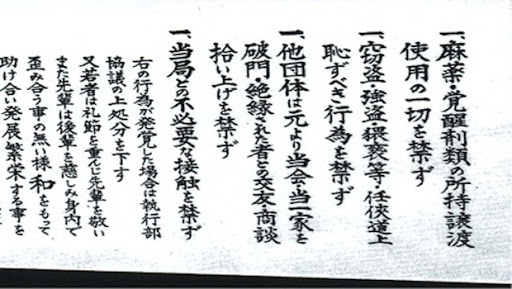 一、麻薬・覚醒剤類の所持譲渡
使用の一切を禁ず
一、窃盗・強盗猥褻等・任侠道上
恥ずべき行為を禁ず
一、他団体は元より当会・当一家を
破門・絶縁された者との交友・商談
拾い上げを禁ず
一、当局との不必要な接触を禁ず
右の行為が発覚した場合は執行部
協議の上処分を下す
又若者は礼節を重んじ先輩を敬い
また先輩は後輩を慈しみ身内で
歪み合う事の無い様和をもって
助け合い発展、繁栄する事を